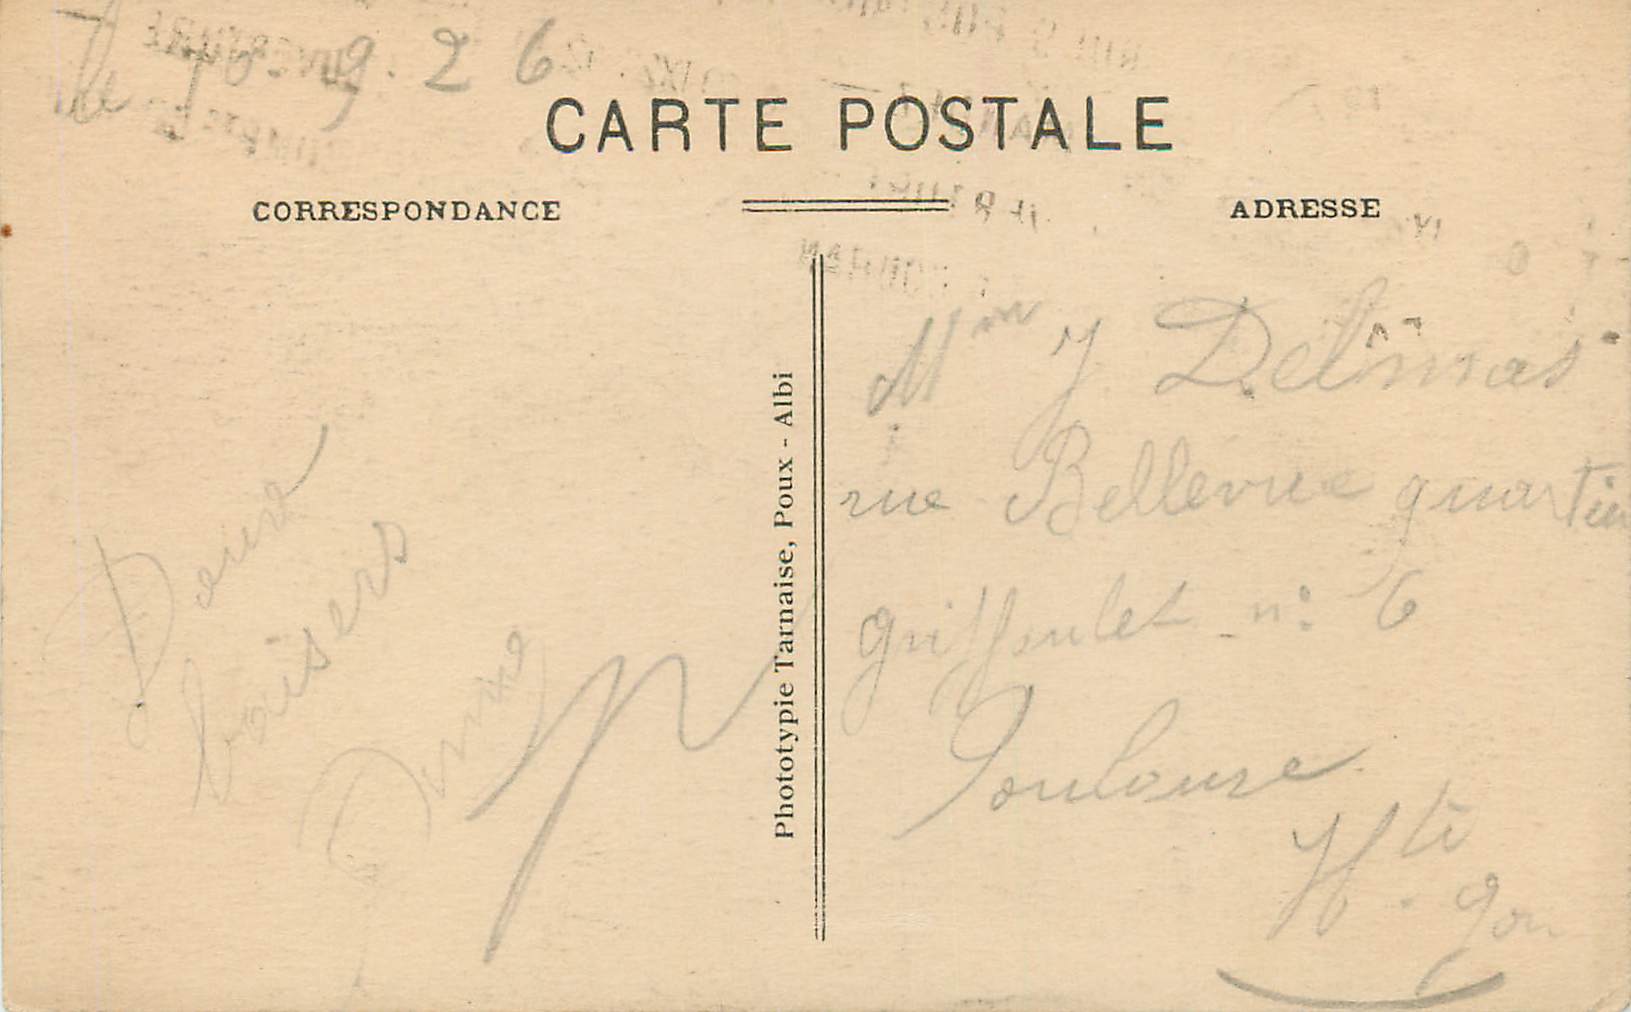 le 10.9.26
CARTE POSTALE
CORRESPONDANCE
ADRESSE
Doux
baisers
Phototypie Tarnaise, Poux - Albi
Mme J Delmas
rue Bellevue quartier
Griffoulet n: 6
Toulouse
Hte
Gon